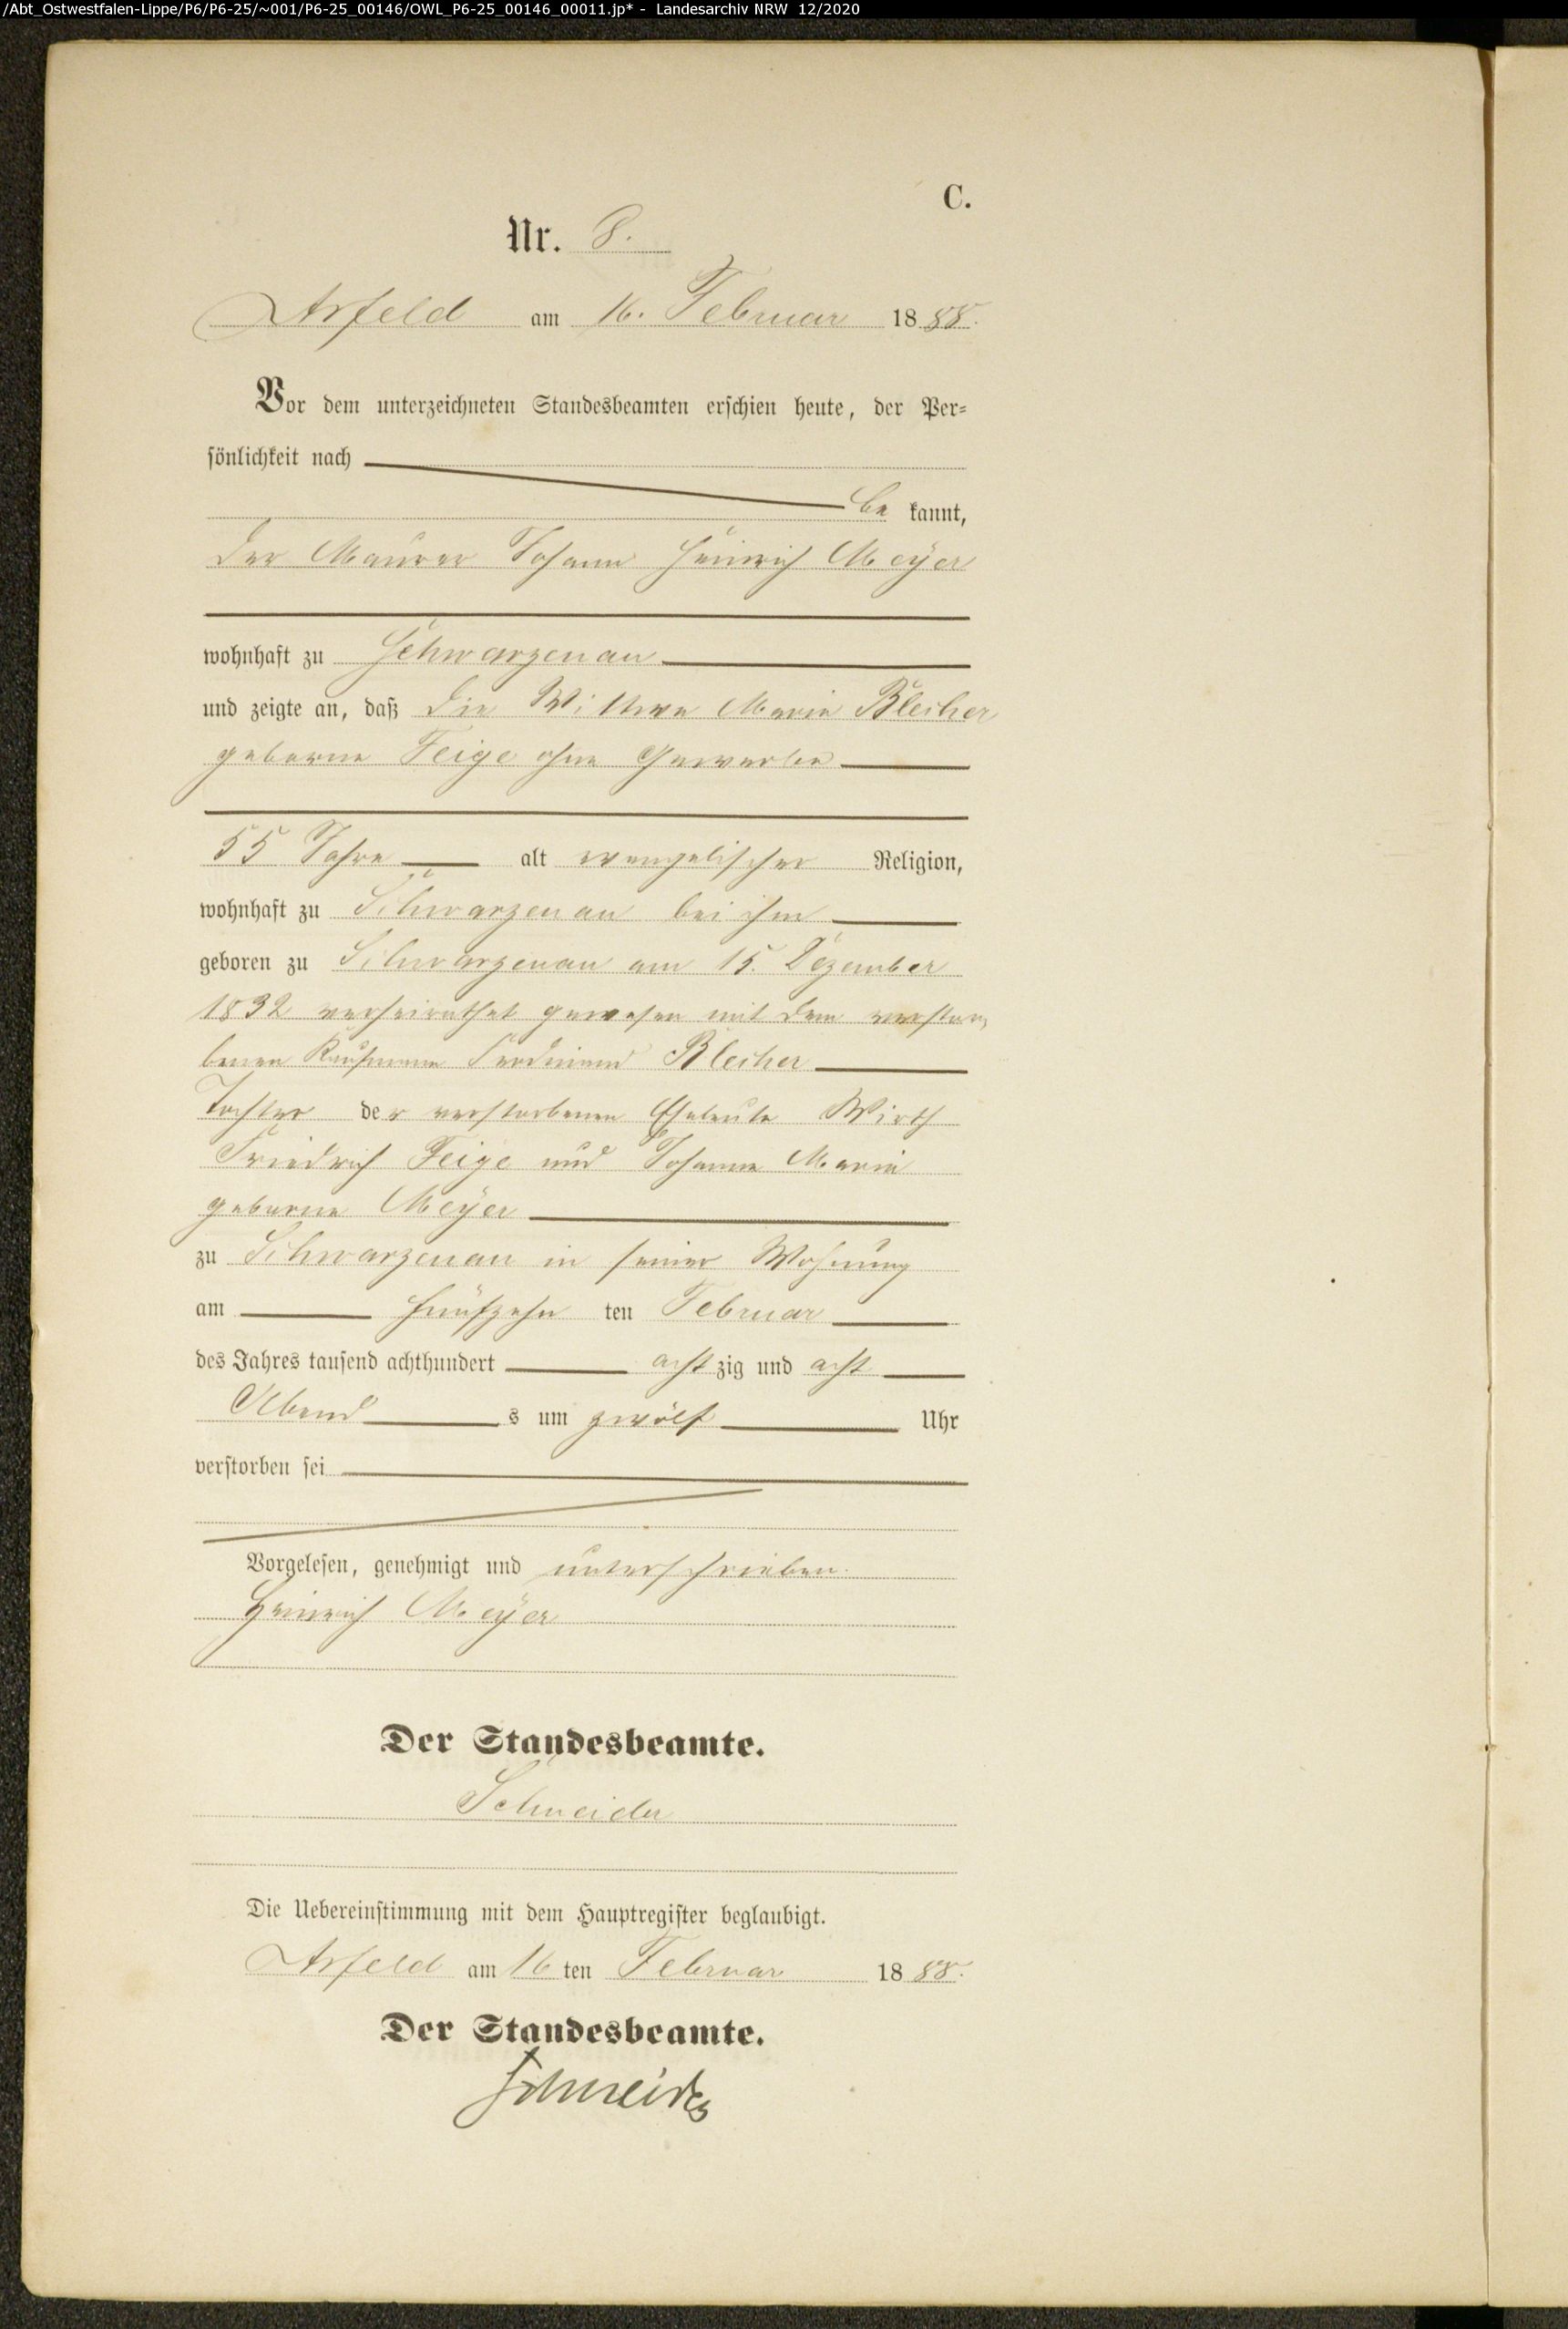 /Abt_Ostwestfalen-Lippe/P6/P6-25/~001/P6-25_00146/OWL_P6-25_00146_00011.jp* - Landesarchiv NRW 12/2020
C.
Nr. 8.
Arfeld am 16. Februar 1888.
Vor dem unterzeichneten Standesbeamten erschien heute, der Per-
sönlichkeit nach
be kannt,
der Maurer Johann Heinrich Meyer
wohnhaft zu Schwarzenau
und zeigte an, daß die Wittwe Marie Bleicher
geborne Feige ohne Gewerbe
55 Jahre alt evangelischer Religion,
wohnhaft zu Schwarzenau bei ihm
geboren zu Schwarzenau am 15. Dezember
1832 verheirathet gewesen mit dem verstor-
benen Kaufmann Ferdinand Bleicher
Tochter der verstorbenen Eheleute Wirth
Friedrich Feige und Johanne Marie
geborne Meyer
zu Schwarzenau in seiner Wohnung
am fünfzehn ten Februar
des Jahres tausend achthundert acht zig und acht
Abend s um zwölf Uhr
verstorben sei
Vorgelesen, genehmigt und unterschrieben.
Heinrich Meyer
Der Standesbeamte.
Schneider
Die Uebereinstimmung mit dem Hauptregister beglaubigt.
Arfeld am 16 ten Februar 1888.
Der Standesbeamte.
Schneider